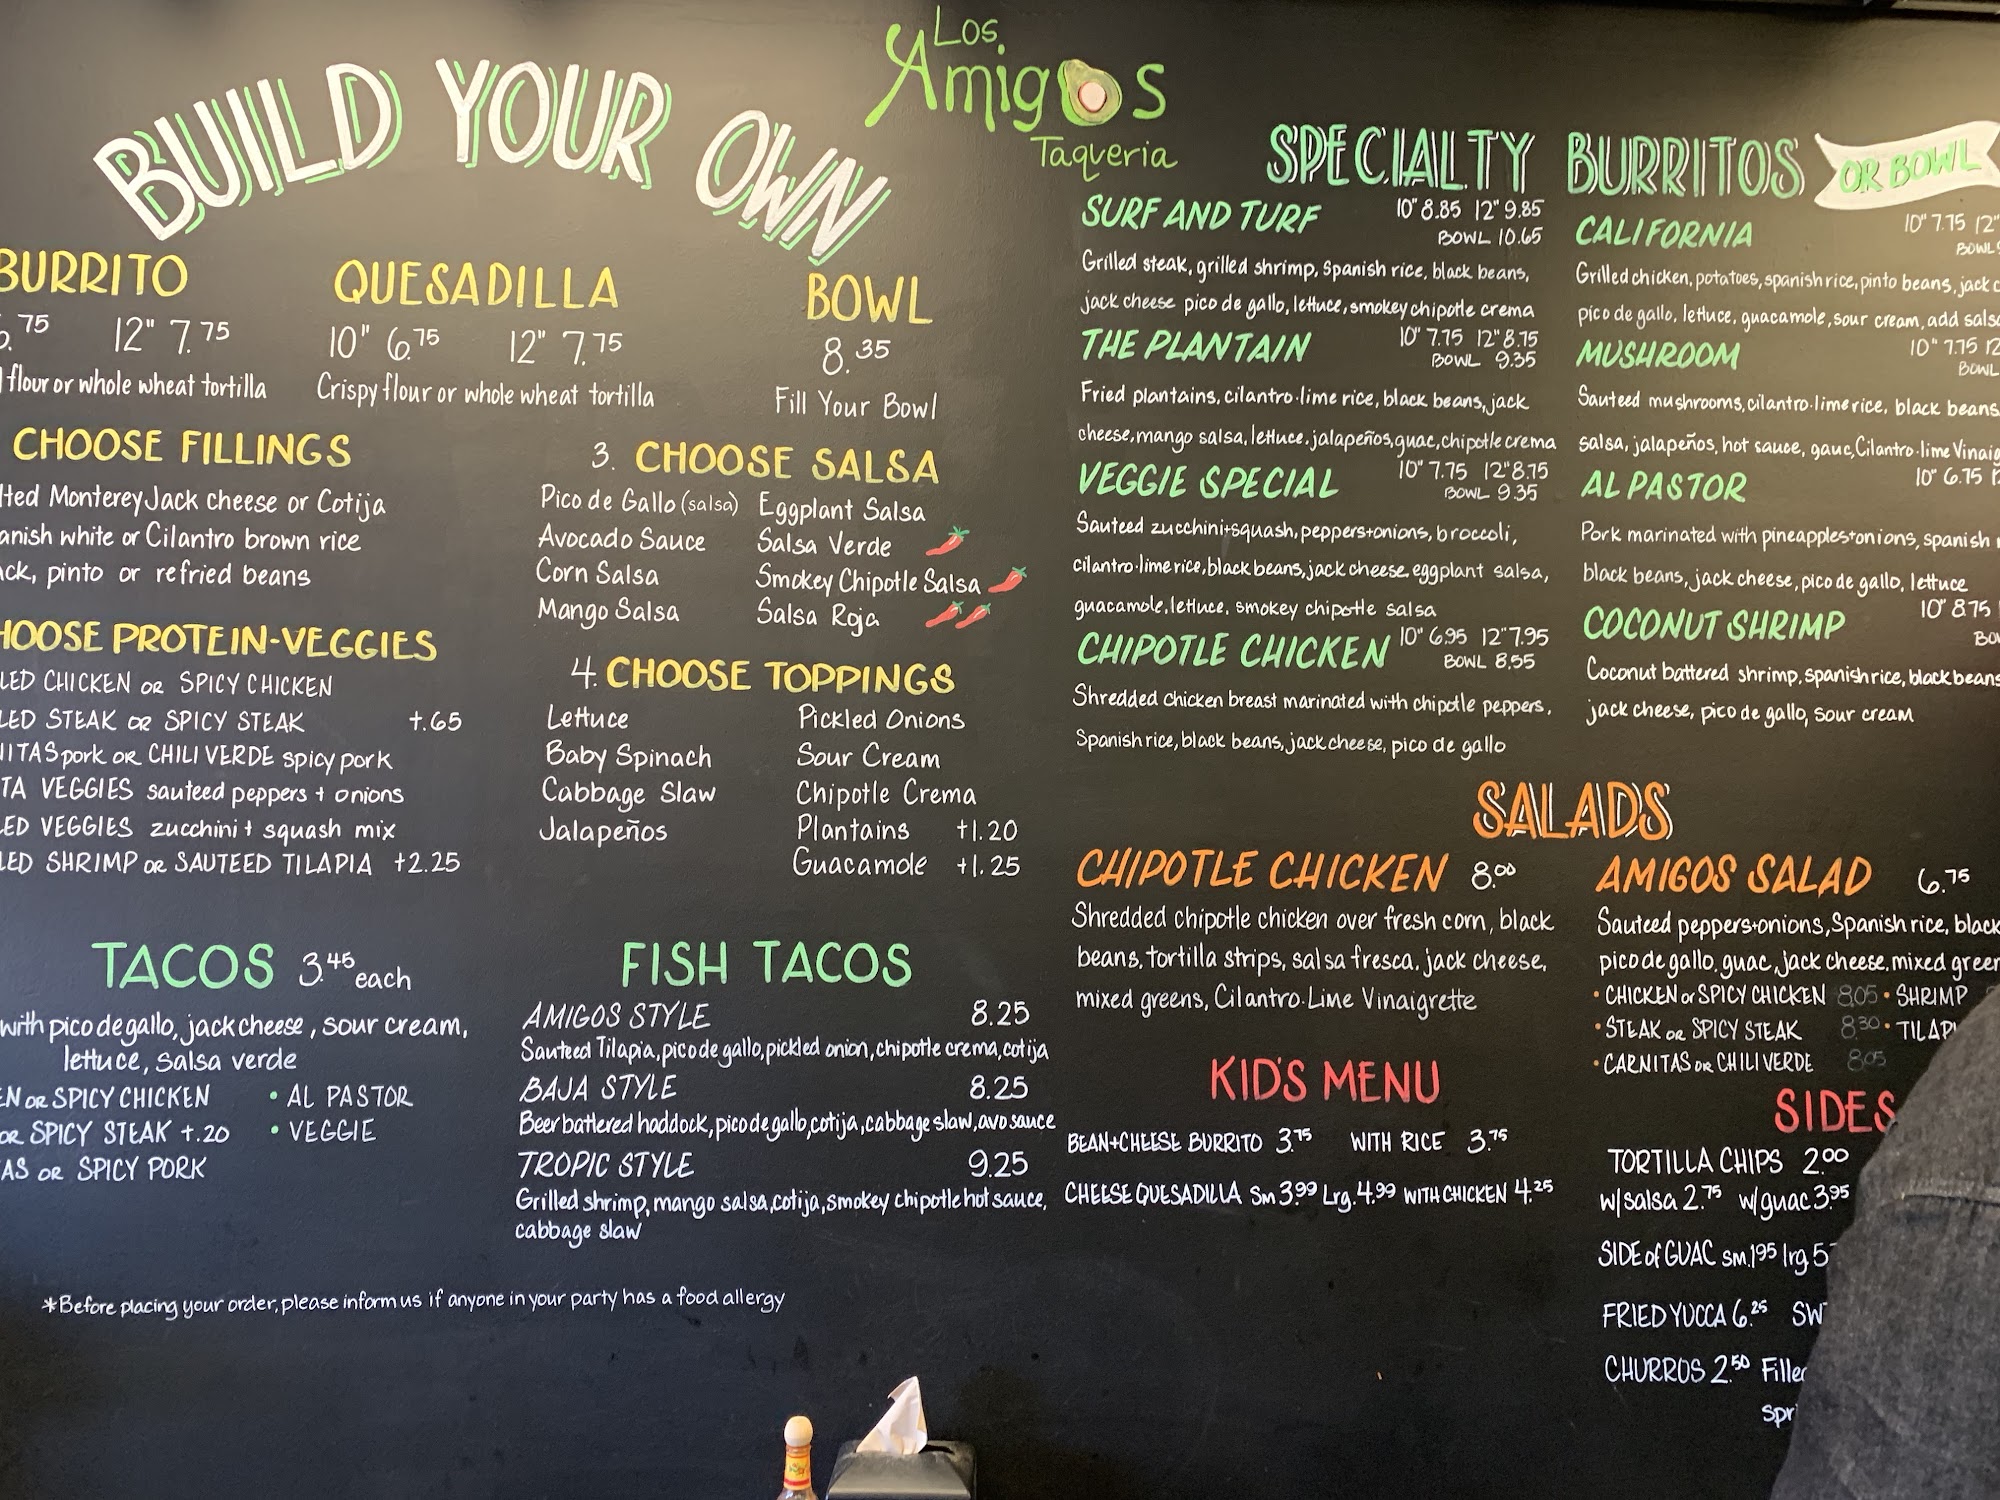 Los
Amigos
Taqueria
BUILD YOUR OWN
BURRITO
.75 12" 7.75
flour or whole wheat tortilla
QUESADILLA
10" 6.75 12" 7.75
Crispy flour or whole wheat tortilla
BOWL
8.35
Fill Your Bowl
CHOOSE FILLINGS
Monterey Jack cheese or Cotija
white or Cilantro brown rice
pinto or refried beans
CHOOSE PROTEIN-VEGGIES
CHICKEN OR SPICY CHICKEN
STEAK OR SPICY STEAK +.65
pork OR CHILI VERDE spicy pork
VEGGIES sauteed peppers + onions
VEGGIES zucchini + squash mix
SHRIMP OR SAUTEED TILAPIA +2.25
3. CHOOSE SALSA
Pico de Gallo (salsa) Eggplant Salsa
Avocado Sauce Salsa Verde
Corn Salsa Smokey Chipotle Salsa
Mango Salsa Salsa Roja
4. CHOOSE TOPPINGS
Lettuce Pickled Onions
Baby Spinach Sour Cream
Cabbage Slaw Chipotle Crema
Jalapeños Plantains +1.20
Guacamole +1.25
TACOS 3.45 each
with pico de gallo, jack cheese, sour cream,
lettuce, salsa verde
OR SPICY CHICKEN • AL PASTOR
OR SPICY STEAK +.20 • VEGGIE
OR SPICY PORK
FISH TACOS
AMIGOS STYLE 8.25
Sauteed Tilapia, pico de gallo, pickled onion, chipotle crema, cotija
BAJA STYLE 8.25
Beer battered haddock, pico de gallo, cotija, cabbage slaw, avo sauce
TROPIC STYLE 9.25
Grilled shrimp, mango salsa, cotija, smokey chipotle hot sauce,
cabbage slaw
*Before placing your order, please inform us if anyone in your party has a food allergy
SPECIALTY BURRITOS OR BOWL
SURF AND TURF 10" 8.85 12" 9.85
BOWL 10.65
Grilled steak, grilled shrimp, Spanish rice, black beans,
jack cheese pico de gallo, lettuce, smokey chipotle crema
THE PLANTAIN 10" 7.75 12" 8.75
BOWL 9.35
Fried plantains, cilantro-lime rice, black beans, jack
cheese, mango salsa, lettuce, jalapeños, guac, chipotle crema
VEGGIE SPECIAL 10" 7.75 12" 8.75
BOWL 9.35
Sauteed zucchini+squash, peppers+onions, broccoli,
cilantro-lime rice, black beans, jack cheese, eggplant salsa,
guacamole, lettuce, smokey chipotle salsa
CHIPOTLE CHICKEN 10" 6.95 12" 7.95
BOWL 8.55
Shredded chicken breast marinated with chipotle peppers,
Spanish rice, black beans, jack cheese, pico de gallo
CALIFORNIA 10" 7.75 12"
BOWL
Grilled chicken, potatoes, spanish rice, pinto beans, jack
pico de gallo, lettuce, guacamole, sour cream, add salsa
MUSHROOM 10" 7.75
BOWL
Sauteed mushrooms, cilantro-lime rice, black beans
salsa, jalapeños, hot sauce, gauc, Cilantro-lime
AL PASTOR 10" 6.75
Pork marinated with pineapples+onions, spanish
black beans, jack cheese, pico de gallo, lettuce
COCONUT SHRIMP 10" 8.75
Coconut battered shrimp, spanish rice, black beans
jack cheese, pico de gallo, sour cream
SALADS
CHIPOTLE CHICKEN 8.00
Shredded chipotle chicken over fresh corn, black
beans, tortilla strips, salsa fresca, jack cheese,
mixed greens, Cilantro-Lime Vinaigrette
AMIGOS SALAD 6.75
Sauteed peppers+onions, Spanish rice, black
pico de gallo, guac, jack cheese, mixed
• CHICKEN or SPICY CHICKEN 8.05 • SHRIMP
• STEAK OR SPICY STEAK 8.30 •
• CARNITAS OR CHILI VERDE 8.05
KID'S MENU
BEAN+CHEESE BURRITO 3.75 WITH RICE 3.75
CHEESE QUESADILLA Sm 3.99 Lrg. 4.99 WITH CHICKEN 4.25
SIDES
TORTILLA CHIPS 2.00
w/salsa 2.75 w/guac 3.95
SIDE of GUAC sm. 1.95 lrg
FRIED YUCCA 6.25
CHURROS 2.50